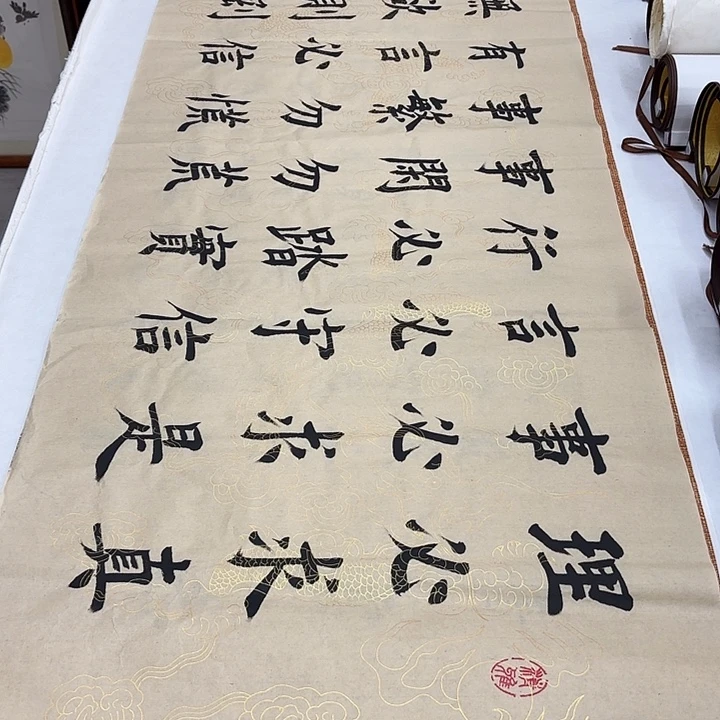 理必求真
事必求是
言必守信
行必踏實
事閑勿荒
事繁勿慌
有言必信
無欲則剛